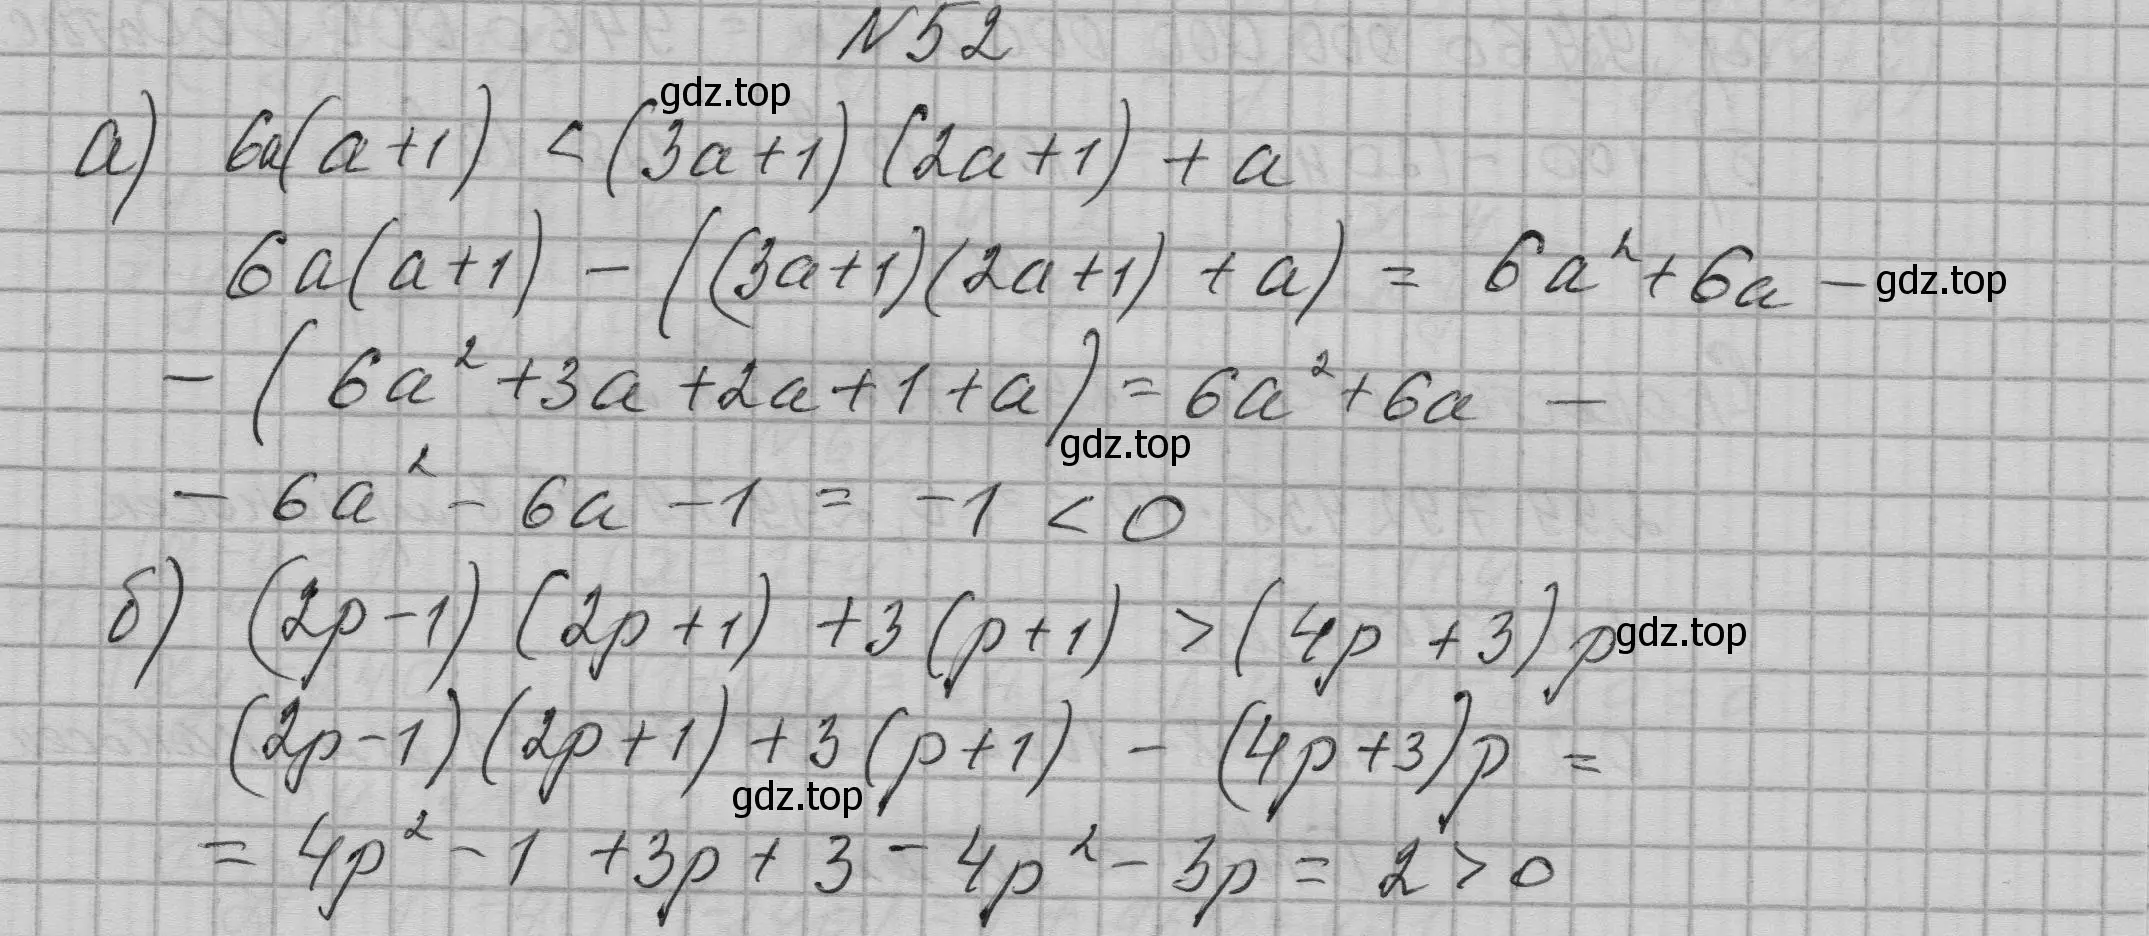 N52
gdz.top
а) 6a(a+1) < (3a+1)(2a+1) + a
6a(a+1) - ((3a+1)(2a+1) + a) = 6a² + 6a - gdz.top
- (6a² + 3a + 2a + 1 + a) = 6a² + 6a -
gdz.top
- 6a² - 6a - 1 = -1 < 0
б) (2p-1)(2p+1) + 3(p+1) > (4p+3)p gdz.top
(2p-1)(2p+1) + 3(p+1) - (4p+3)p =
gdz.top
= 4p² - 1 + 3p + 3 - 4p² - 3p = 2 > 0